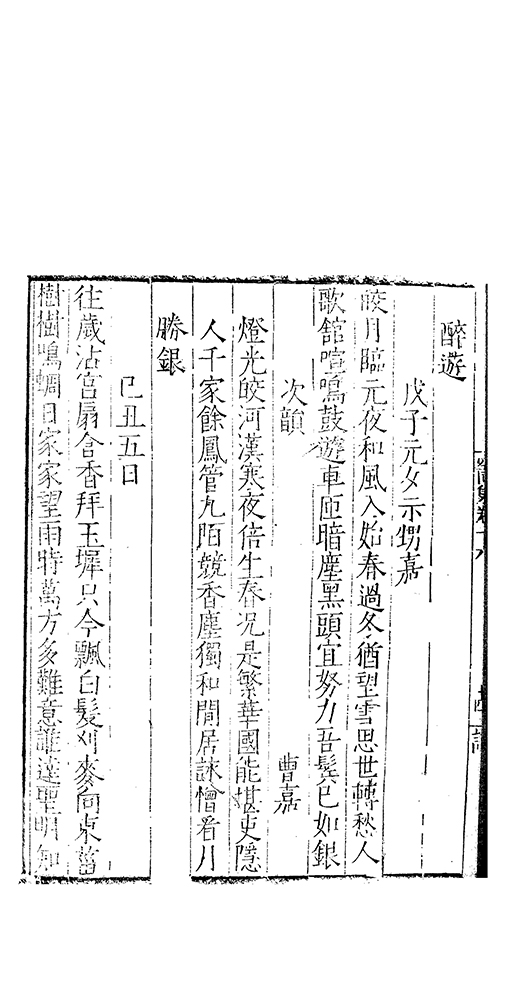 醉遊
戊子元夕示甥嘉
皎月臨元夜和風入始春過冬猶望雪思世轉愁人
歌館喧鳴鼓遊車匝暗塵黑頭宜努力吾鬂已如銀
次韻 曹嘉
燈光皎河漢寒夜倍生春况是繁華國能堪吏隱
人千家餘鳳管九陌競香塵獨和閒居詠憎看月
勝銀
己丑五日
往歲沾宮扇含香拜玉墀只今飄白髮刈麥向東菑
樹樹鳴蜩日家家望雨時萬方多難意誰達聖明知